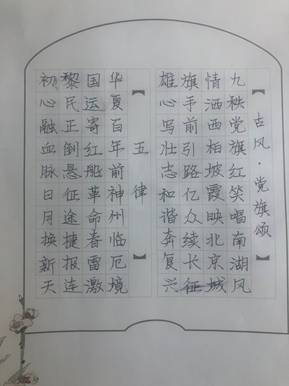 【古风·党旗颂】
九秩党旗红笑唱南湖风
情洒西柏坡霞映北京城
旗手前引路亿众续长征
雄心写壮志和谐奔复兴
【五律】
华夏百年前神州临厄境
国运寄红船革命春雷激
黎民正倒悬征途捷报连
初心融血脉日月换新天